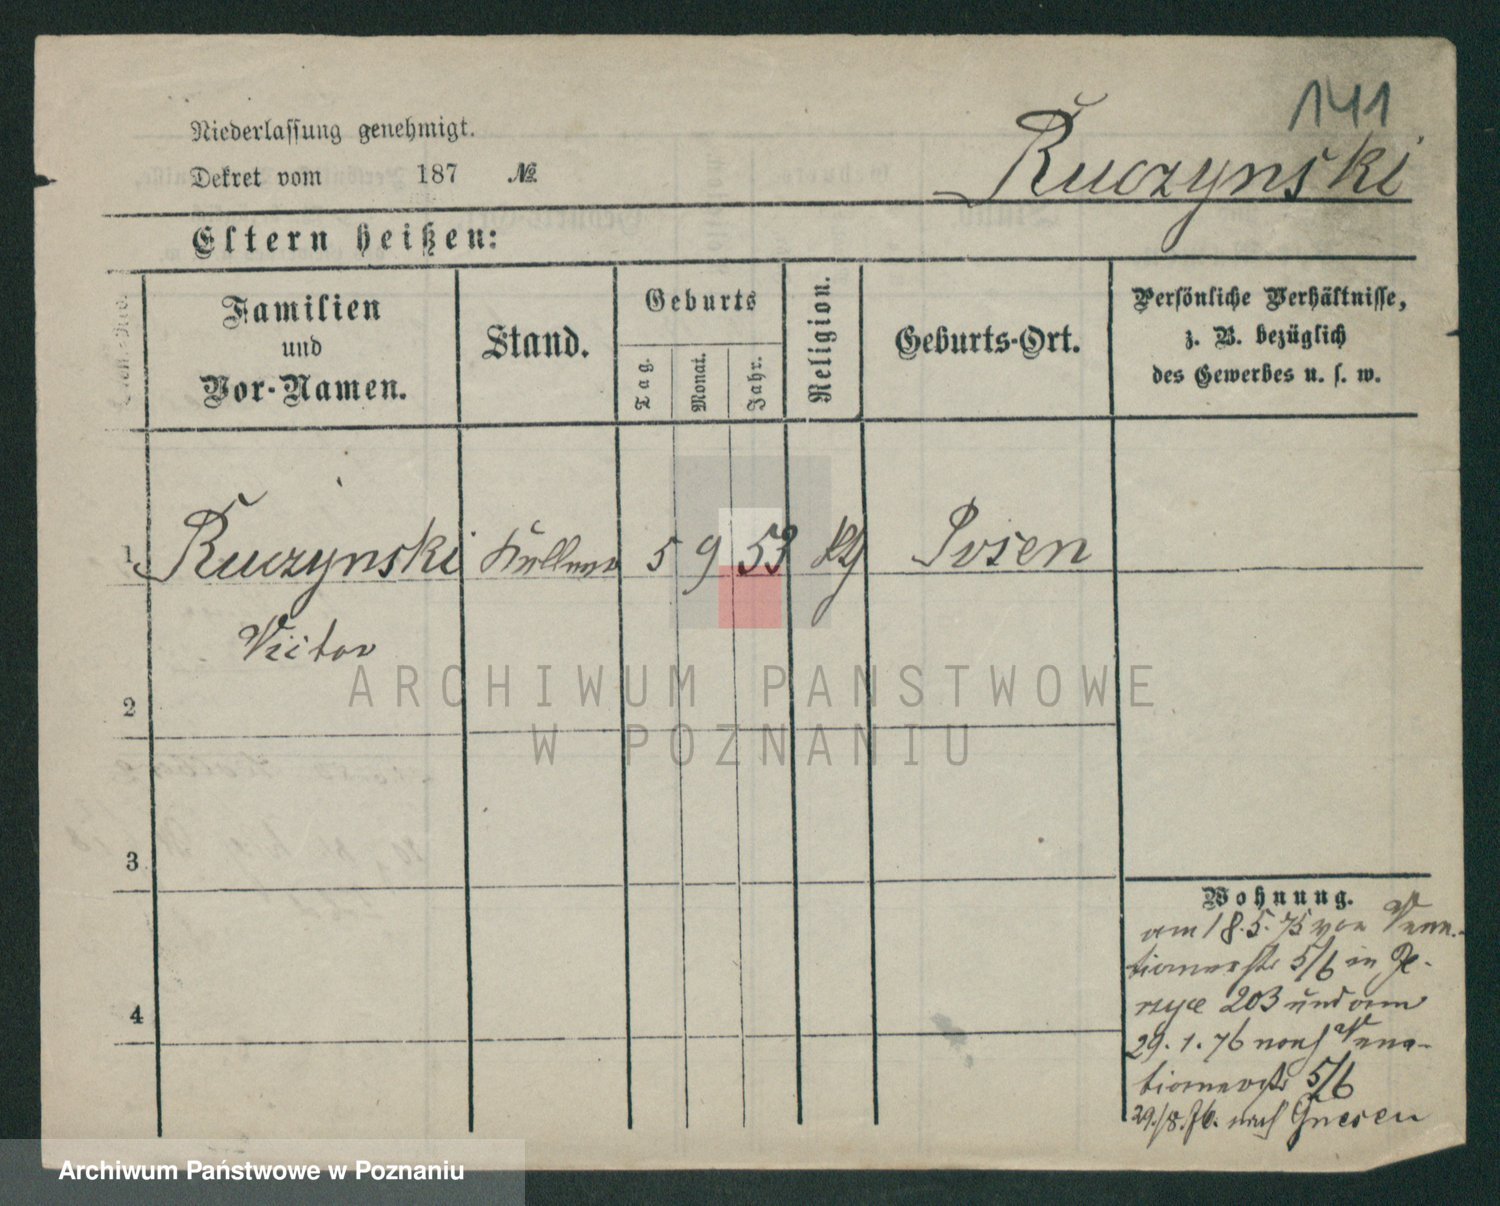 141
Ruczynski
Niederlassung genehmigt.
Dekret vom 187 №
Eltern heißen:
Familien
und
Vor-Namen.
Stand.
Geburts
Tag.
Monat.
Jahr.
Religion.
Geburts-Ort.
Persönliche Verhältnisse,
z. B. bezüglich
des Gewerbes u. s. w.
1 Ruczynski Kellner 5 9 53 kg Posen
Victor
2
3
4
Wohnung.
am 18.5.75 von
5/6 in Je-
rzyce 203 und am
29.1.76 nach
5/6
29./8.76. nach Gnesen
ARCHIWUM PAŃSTWOWE
W POZNANIU
Archiwum Państwowe w Poznaniu